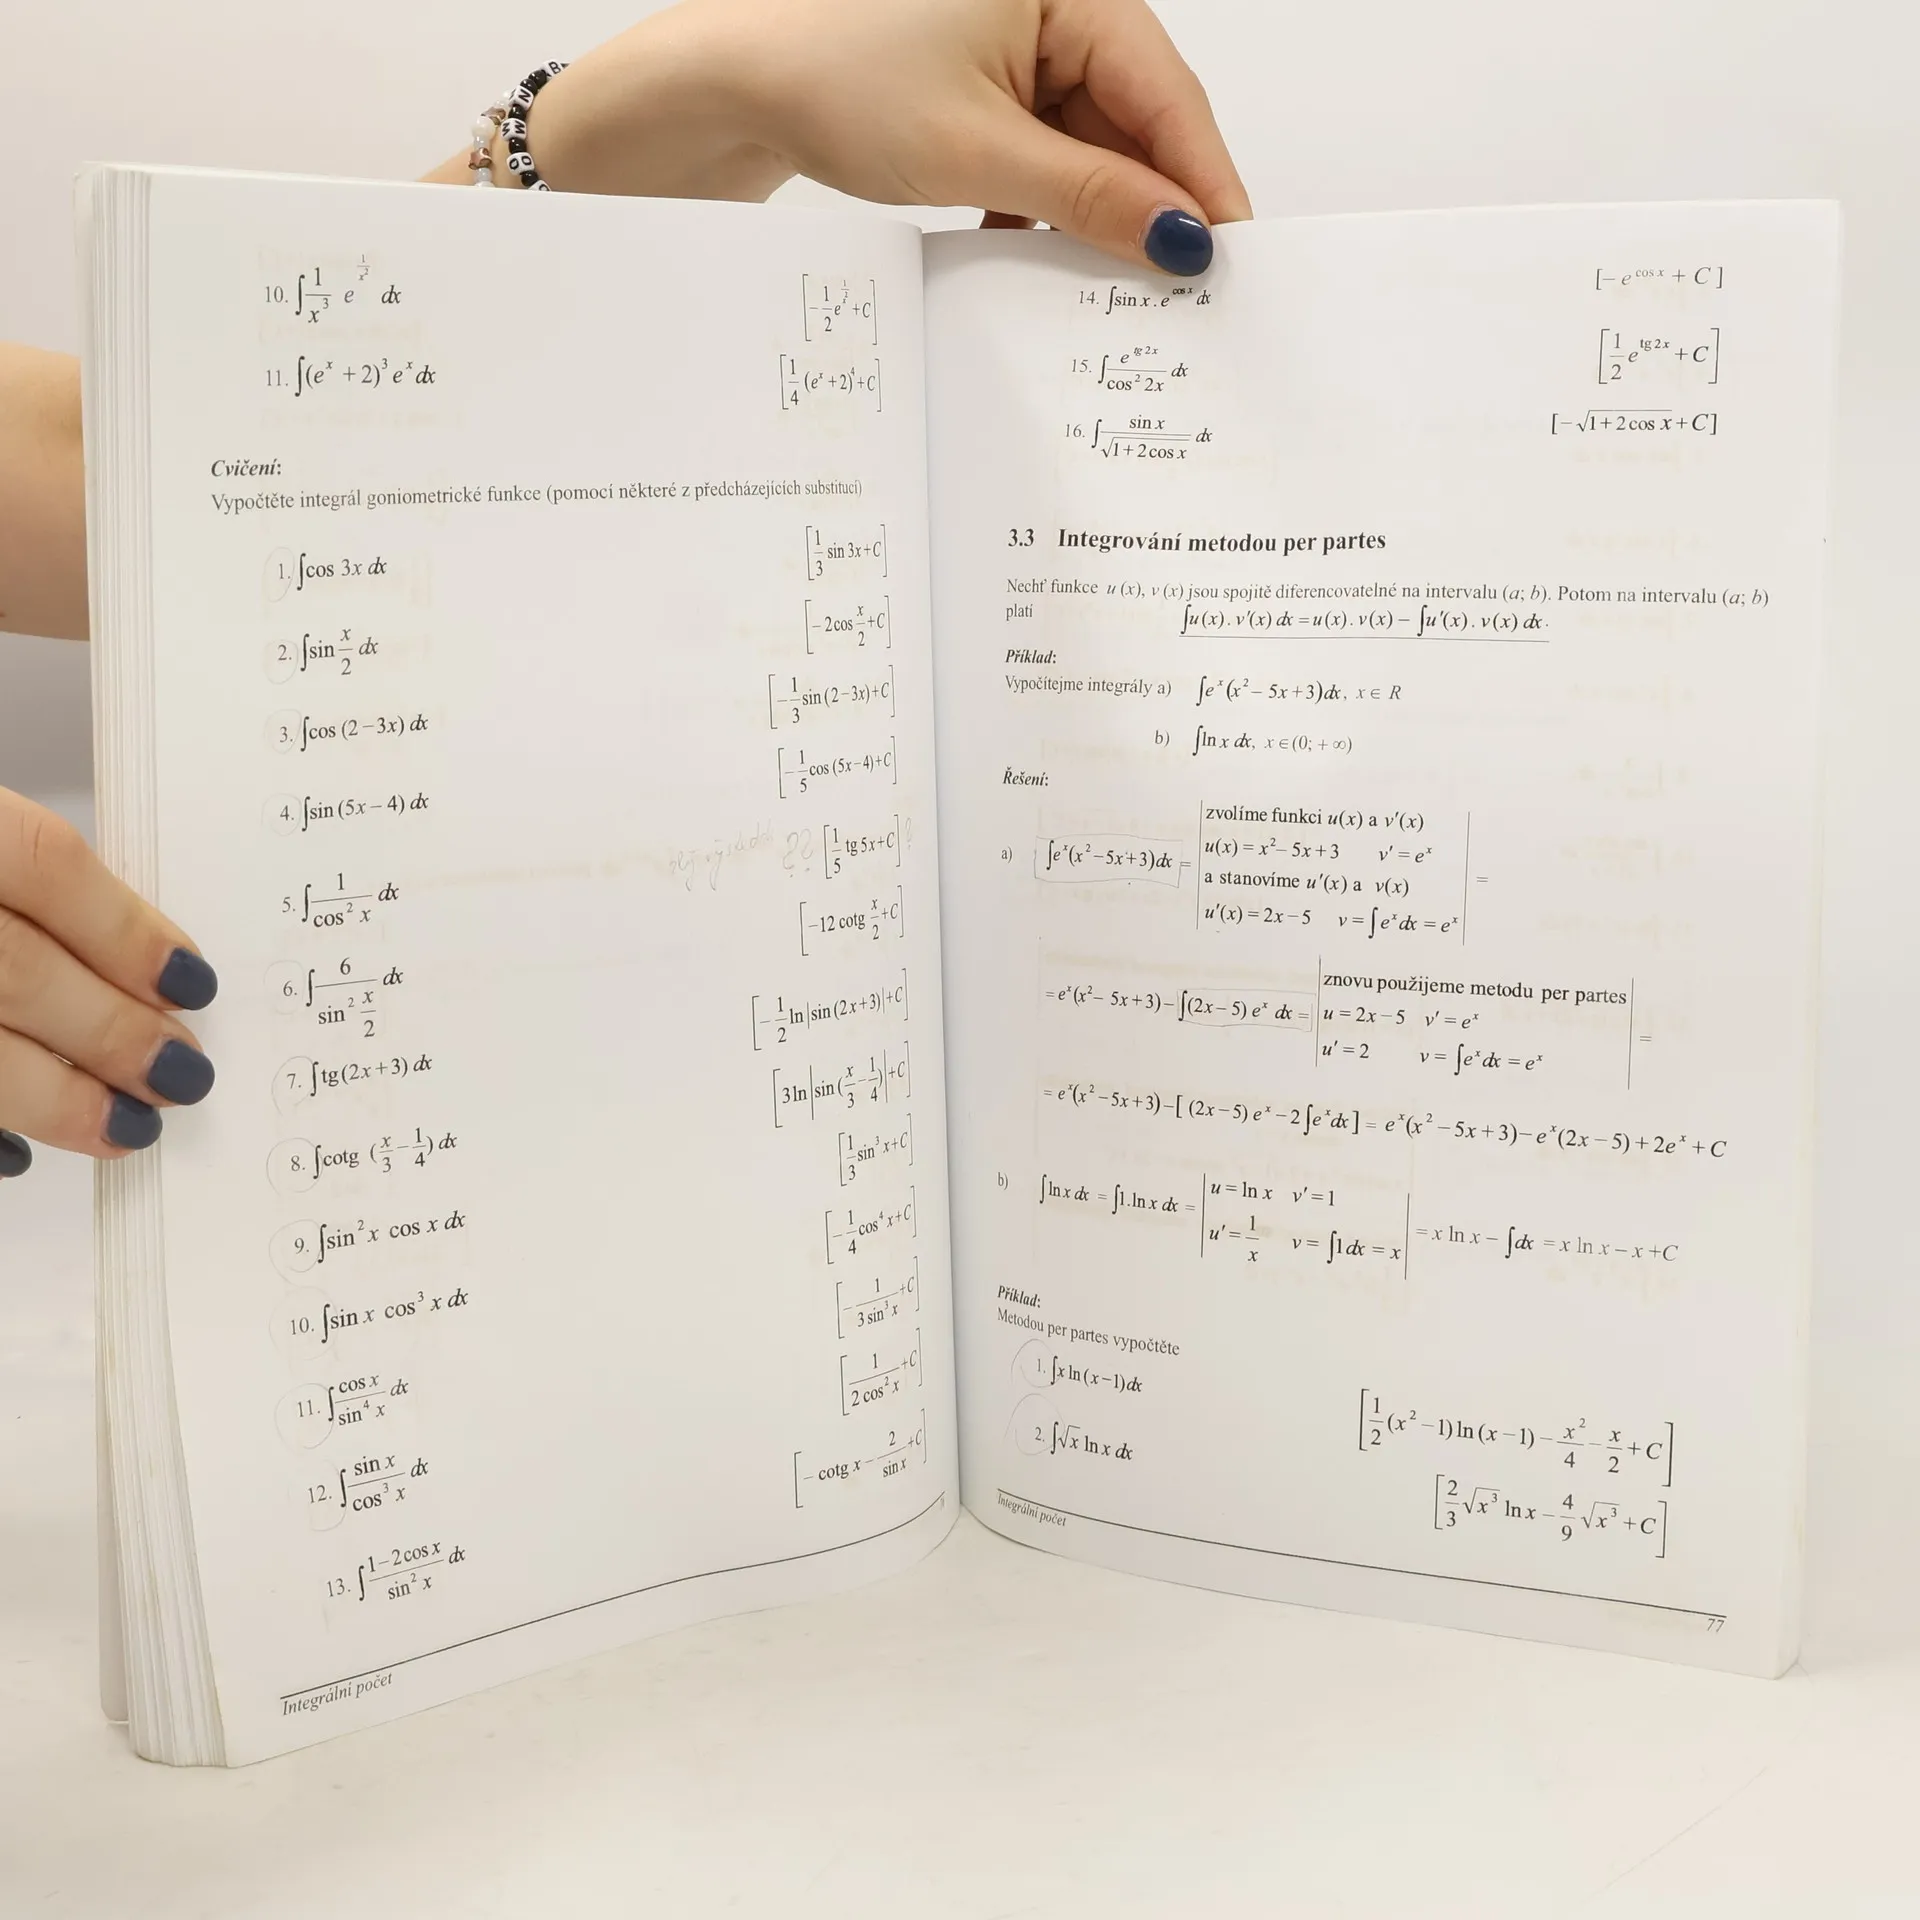 10. ∫ 1/x³ e^(1/x²) dx [-1/2 e^(1/x²) +C]
11. ∫(e^x + 2)³ e^x dx [1/4 (e^x +2)⁴+C]
Cvičení:
Vypočtěte integrál goniometrické funkce (pomocí některé z předcházejících substitucí)
1. ∫cos 3x dx [1/3 sin 3x+C]
2. ∫sin x/2 dx [-2cos x/2 +C]
3. ∫cos (2-3x) dx [-1/3 sin (2-3x)+C]
4. ∫sin (5x-4) dx [-1/5 cos (5x-4)+C]
5. ∫ 1/cos² x dx ?? [1/5 tg 5x+C] ?
6. ∫ 6/sin² x/2 dx [-12 cotg x/2 +C]
7. ∫tg (2x+3) dx [-1/2 ln|sin (2x+3)|+C]
8. ∫cotg (x/3 - 1/4) dx [3 ln|sin (x/3 - 1/4)|+C]
9. ∫sin² x cos x dx [1/3 sin³ x+C]
10. ∫sin x cos³ x dx [-1/4 cos⁴ x+C]
11. ∫ cos x/sin⁴ x dx [-1/(3 sin³ x) +C]
12. ∫ sin x/cos³ x dx [1/(2 cos² x) +C]
13. ∫ (1-2cos x)/sin² x dx [-cotg x - 2/sin x +C]
Integrální počet
14. ∫sin x . e^(cos x) dx [-e^(cos x) + C]
15. ∫ e^(tg 2x)/cos² 2x dx [1/2 e^(tg 2x) + C]
16. ∫ sin x/√(1+2cos x) dx [-√(1+2cos x) + C]
3.3 Integrování metodou per partes
Nechť funkce u (x), v (x) jsou spojitě diferencovatelné na intervalu (a; b). Potom na intervalu (a; b)
platí ∫u(x) . v'(x) dx = u(x) . v(x) - ∫u'(x) . v(x) dx .
Příklad:
Vypočítejme integrály a) ∫e^x (x² - 5x+3)dx, x ∈ R
b) ∫ln x dx, x ∈ (0; + ∞)
Řešení:
zvolíme funkci u(x) a v'(x)
a) ∫e^x (x² -5x+3)dx = u(x) = x² - 5x+3 v' = e^x
a stanovíme u'(x) a v(x) =
u'(x) = 2x-5 v = ∫e^x dx = e^x
znovu použijeme metodu per partes
= e^x (x² - 5x+3) - ∫(2x-5) e^x dx = u = 2x-5 v' = e^x =
u' = 2 v = ∫e^x dx = e^x
= e^x (x² -5x+3) -[ (2x-5) e^x -2∫e^x dx ] = e^x (x² -5x+3) - e^x (2x-5) + 2e^x + C
b) ∫ln x dx = ∫1.ln x dx = u = ln x v' = 1
u' = 1/x v = ∫1 dx = x = x ln x - ∫dx = x ln x - x +C
Příklad:
Metodou per partes vypočtěte
1. ∫x ln (x-1)dx [1/2 (x² -1) ln (x-1) - x²/4 - x/2 + C]
2. ∫√x ln x dx [2/3 √x³ ln x - 4/9 √x³ + C]
Integrální počet
77